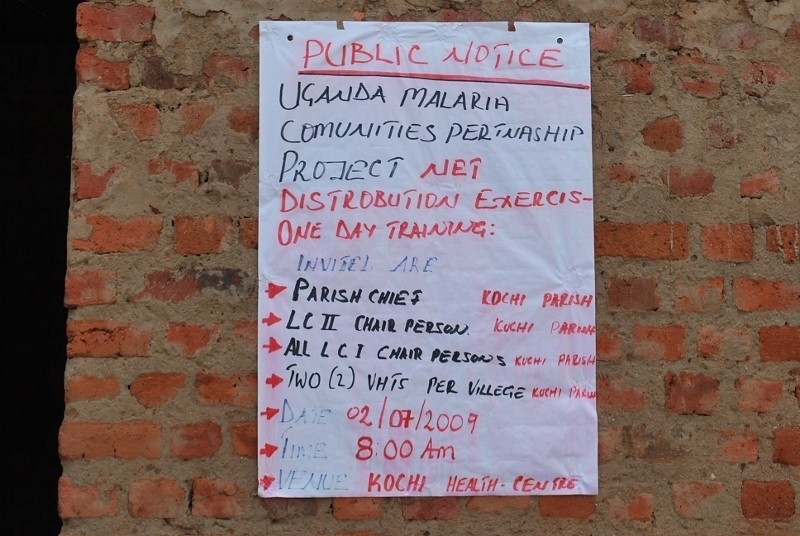 PUBLIC NOTICE
UGANDA MALARIA
COMUNITIES PERTNASHIP
PROJECT NET
DISTROBUTION EXERCIS-
ONE DAY TRAINING:
INVITEL ARE
PARISH CHIEF KOCHI PARISH
LC II CHAIR PERSON. KUCHI PARISH
ALL LC I CHAIR PERSONS KUCHI PARISH
TWO (2) VHTS PER VILLEGE KUCHI PARISH
DATE 02/07/2009
TIME 8:00 Am
VENUE KOCHI HEALTH-CENTRE